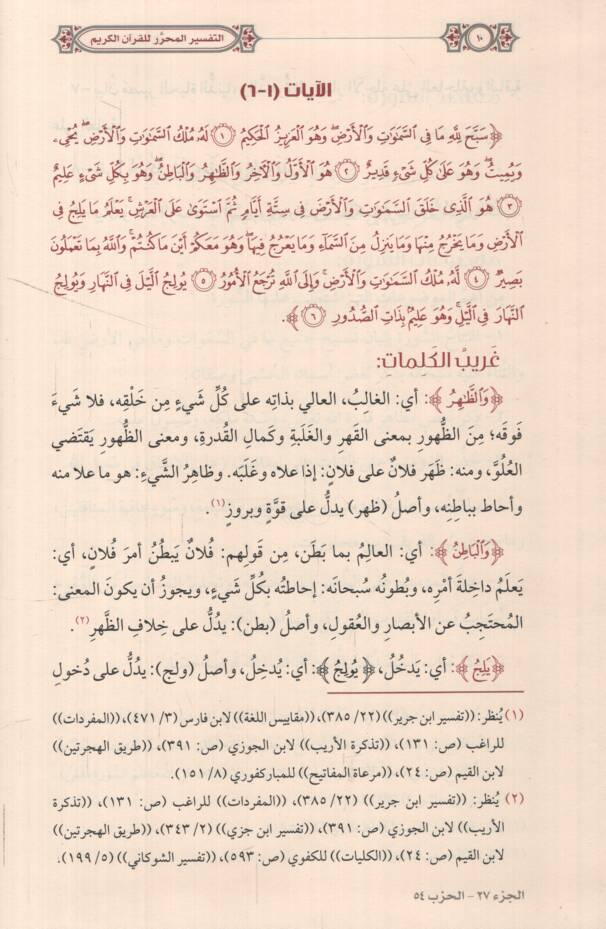 ١٠
التفسير المحرَّر للقرآن الكريم
الآيات (١-٦)
﴿سَبَّحَ لِلَّهِ مَا فِي السَّمَٰوَٰتِ وَالْأَرْضِ ۖ وَهُوَ الْعَزِيزُ الْحَكِيمُ ١ لَهُ مُلْكُ السَّمَٰوَٰتِ وَالْأَرْضِ ۖ يُحْيِۦ
وَيُمِيتُ ۖ وَهُوَ عَلَىٰ كُلِّ شَيْءٍ قَدِيرٌ ٢ هُوَ الْأَوَّلُ وَالْآخِرُ وَالظَّٰهِرُ وَالْبَاطِنُ ۖ وَهُوَ بِكُلِّ شَيْءٍ عَلِيمٌ
٣ هُوَ الَّذِي خَلَقَ السَّمَٰوَٰتِ وَالْأَرْضَ فِي سِتَّةِ أَيَّامٍ ثُمَّ اسْتَوَىٰ عَلَى الْعَرْشِ ۚ يَعْلَمُ مَا يَلِجُ فِي
الْأَرْضِ وَمَا يَخْرُجُ مِنْهَا وَمَا يَنزِلُ مِنَ السَّمَاءِ وَمَا يَعْرُجُ فِيهَا ۖ وَهُوَ مَعَكُمْ أَيْنَ مَا كُنتُمْ ۚ وَاللَّهُ بِمَا تَعْمَلُونَ
بَصِيرٌ ٤ لَّهُ مُلْكُ السَّمَٰوَٰتِ وَالْأَرْضِ ۚ وَإِلَى اللَّهِ تُرْجَعُ الْأُمُورُ ٥ يُولِجُ الَّيْلَ فِي النَّهَارِ وَيُولِجُ
النَّهَارَ فِي الَّيْلِ ۚ وَهُوَ عَلِيمٌ بِذَاتِ الصُّدُورِ ٦﴾.
غَريبُ الكَلِماتِ:
﴿وَالظَّٰهِرُ﴾: أي: الغالِبُ، العالي بذاتِه على كُلِّ شَيءٍ مِن خَلْقِه، فلا شَيءَ
فَوقَه؛ مِنَ الظُّهورِ بمعنى القَهرِ والغَلَبةِ وكَمالِ القُدرةِ، ومعنى الظُّهورِ يَقتَضي
العُلُوَّ، ومنه: ظَهَر فلانٌ على فلانٍ: إذا علاه وغَلَبَه. وظاهِرُ الشَّيءِ: هو ما علا منه
وأحاط بباطِنِه، وأصلُ (ظهر) يدلُّ على قوَّةٍ وبروزٍ(١).
﴿وَالْبَاطِنُ﴾: أي: العالِمُ بما بَطَن، مِن قَولِهم: فُلانٌ يَبطُنُ أمرَ فُلانٍ، أي:
يَعلَمُ داخِلةَ أمْرِه، وبُطونُه سُبحانَه: إحاطتُه بكُلِّ شَيءٍ، ويجوزُ أن يكونَ المعنى:
المُحتَجِبُ عن الأبصارِ والعُقولِ، وأصلُ (بطن): يدُلُّ على خِلافِ الظَّهرِ(٢).
﴿يَلِجُ﴾: أي: يَدخُلُ، ﴿يُولِجُ﴾: أي: يُدخِلُ، وأصلُ (ولج): يدُلُّ على دُخولِ
(١) يُنظر: ((تفسير ابن جرير)) (٢٢/ ٣٨٥)، ((مقاييس اللغة)) لابن فارس (٣/ ٤٧١)، ((المفردات))
للراغب (ص: ١٣١)، ((تذكرة الأريب)) لابن الجوزي (ص: ٣٩١)، ((طريق الهجرتين))
لابن القيم (ص: ٢٤)، ((مرعاة المفاتيح)) للمباركفوري (٨/ ١٥١).
(٢) يُنظر: ((تفسير ابن جرير)) (٢٢/ ٣٨٥)، ((المفردات)) للراغب (ص: ١٣١)، ((تذكرة
الأريب)) لابن الجوزي (ص: ٣٩١)، ((تفسير ابن جزي)) (٢/ ٣٤٣)، ((طريق الهجرتين))
لابن القيم (ص: ٢٤)، ((الكليات)) للكفوي (ص: ٥٩٣)، ((تفسير الشوكاني)) (٥/ ١٩٩).
الجزء ٢٧ - الحزب ٥٤